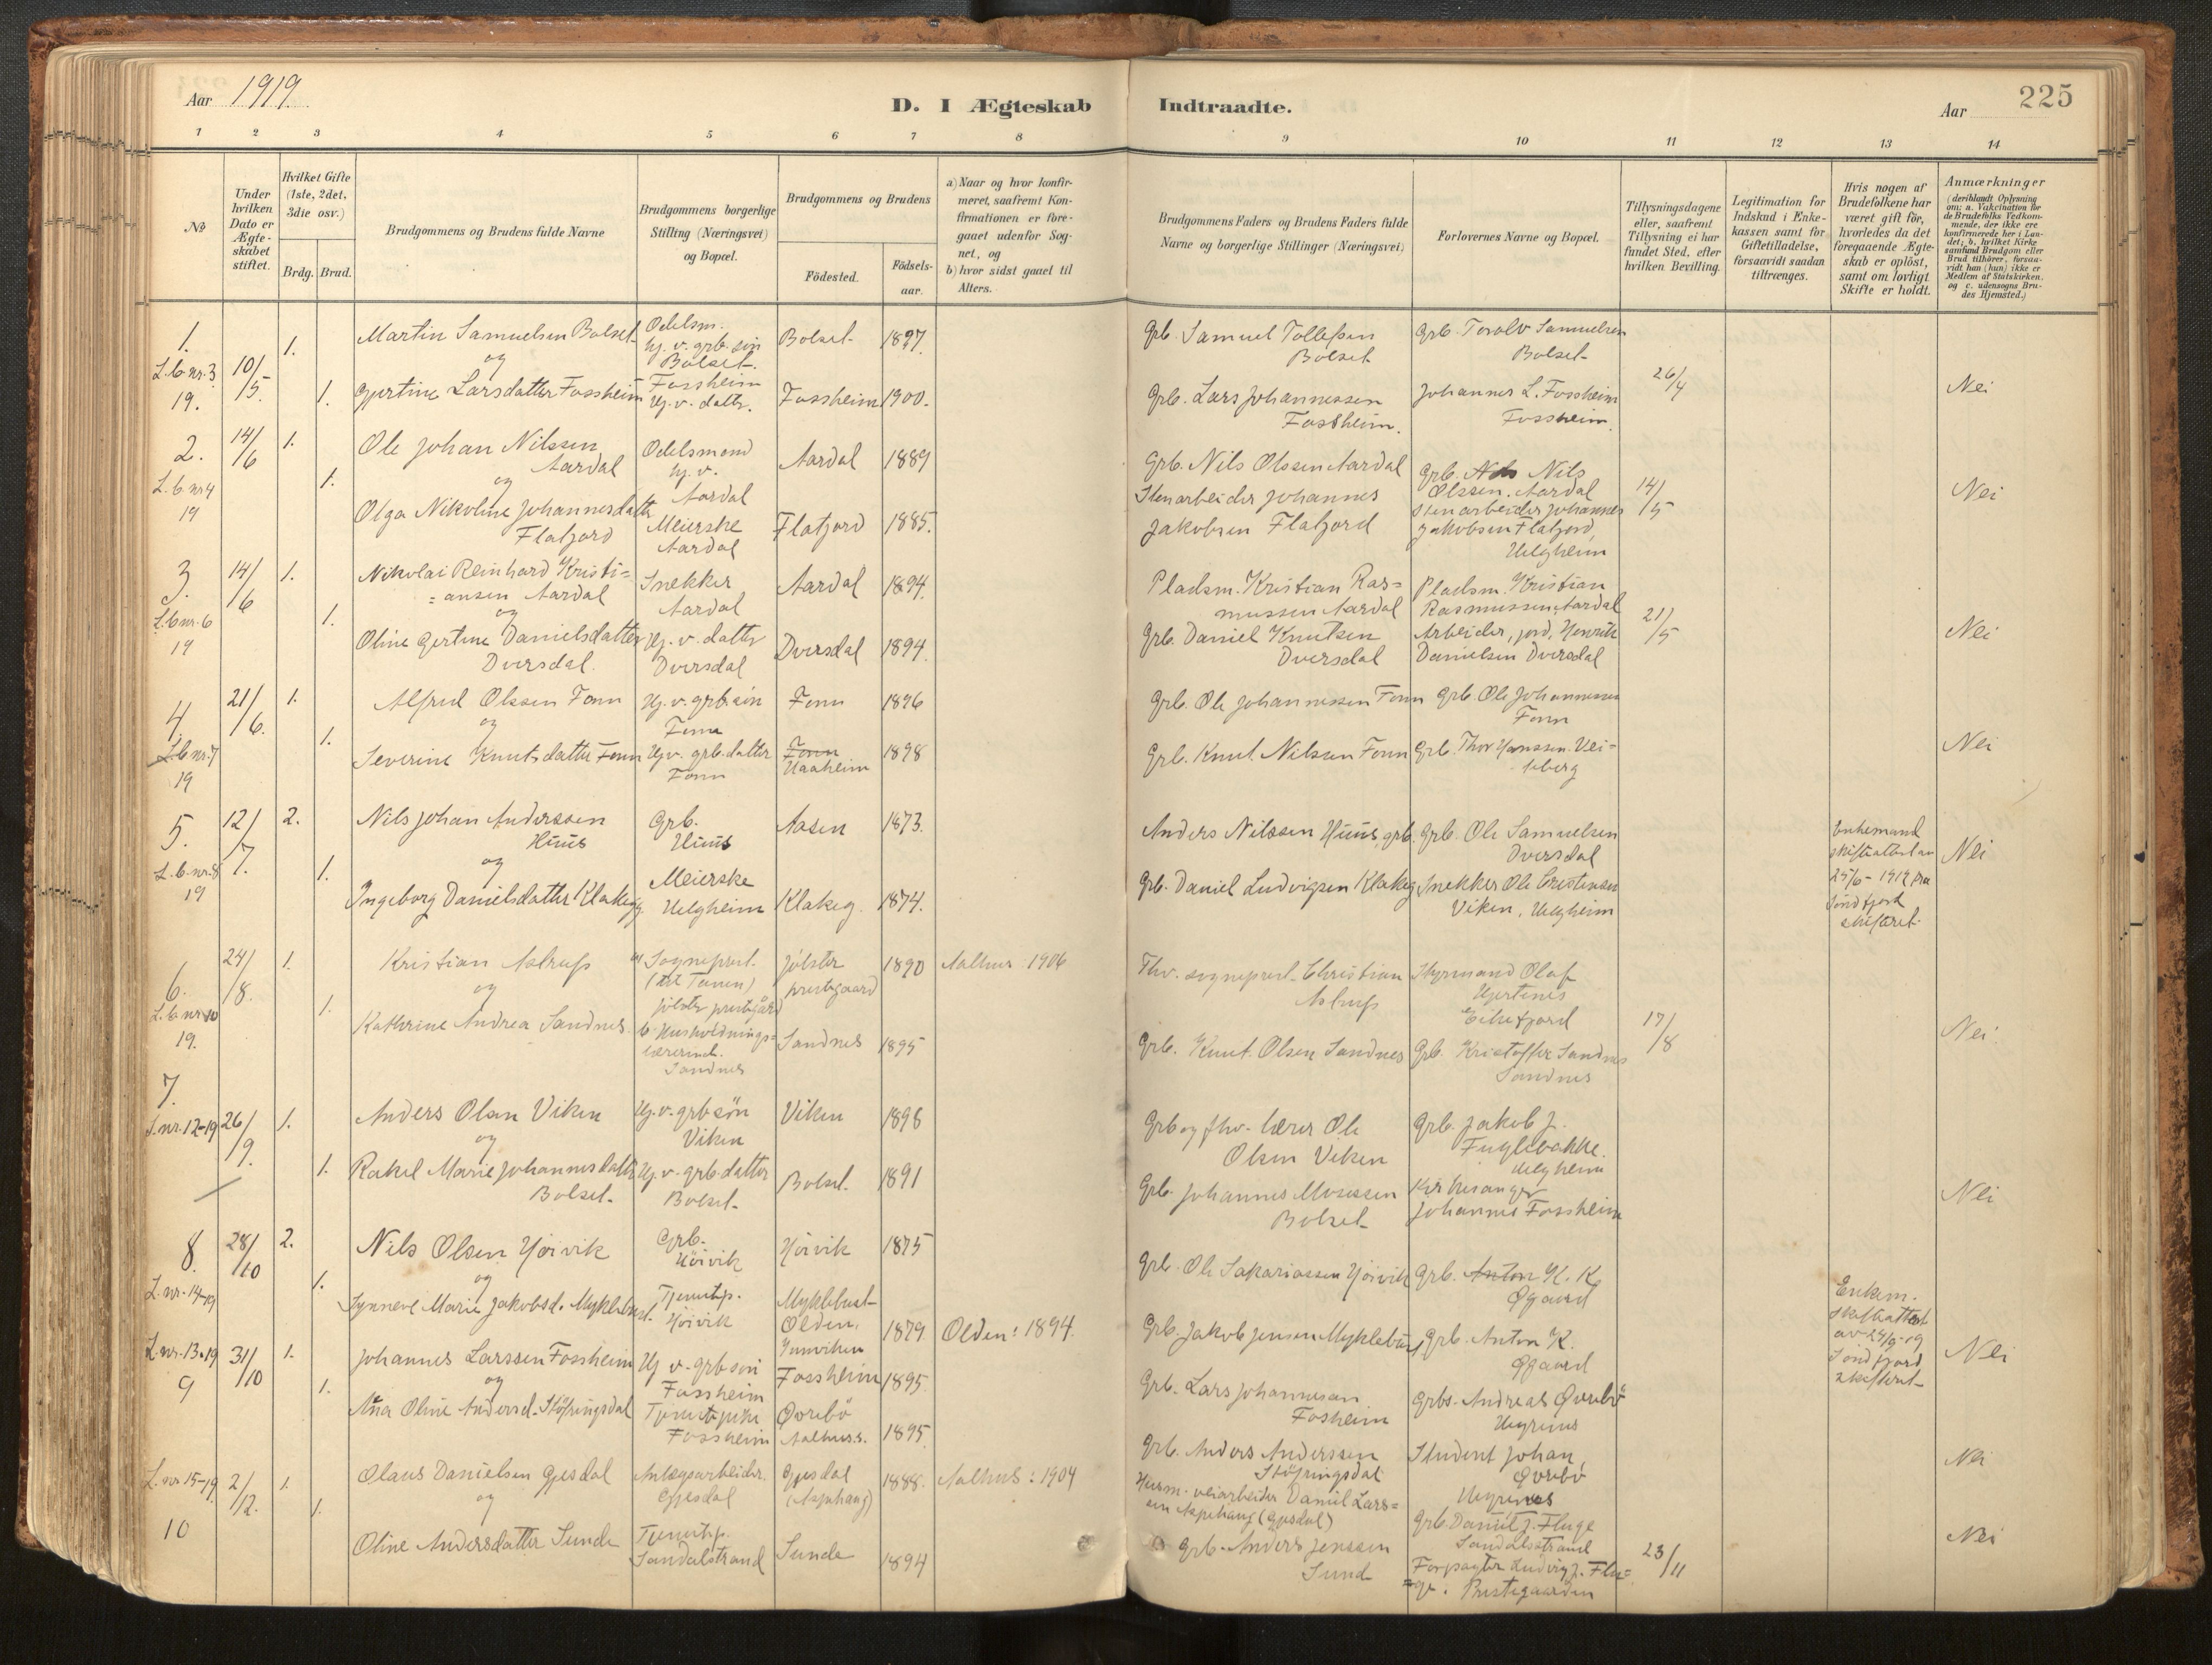 Aar 1919.
D. I Ægteskab Indtraadte.
Aar
225
1 2 3 4 5 6 7 8 9 10 11 12 13 14
No
Under hvilken Dato er Ægteskabet stiftet.
Hvilket Gifte (1ste, 2det, 3die osv.)
Brdg. Brud.
Brudgommens og Brudens fulde Navne
Brudgommens borgerlige Stilling (Næringsvei) og Bopæl.
Brudgommens og Brudens
Födested.
Födselsaar.
a) Naar og hvor konfirmeret, saafremt Konfirmationen er foregaaet udenfor Sognet, og
b) hvor sidst gaaet til Alters.
Brudgommens Faders og Brudens Faders fulde Navne og borgerlige Stillinger (Næringsvei)
Forlovernes Navne og Bopæl.
Tillysningsdagene eller, saafremt Tillysning ei har fundet Sted, efter hvilken Bevilling.
Legitimation for Indskud i Enkekassen samt for Giftetilladelse, forsaavidt saadan tiltrænges.
Hvis nogen af Brudefolkene har været gift för, hvorledes da det foregaaende Ægteskab er oplöst, samt om lovligt Skifte er holdt.
Anmærkninger
(deriblandt Oplysning om: a. Vakcination for de Brudefolks Vedkommende, der ikke ere konfirmerede her i Landet; b. hvilket Kirkesamfund Brudgom eller Brud tilhörer, forsaavidt han (hun) ikke er Medlem af Statskirken, og c. udensogns Brudes Hjemsted.)
1. L.b.nr.3 19. 10/5. 1.
Martin Samuelsen Bolset
Odelsm. hj. v. grb. sön Bolset.
Bolset 1897.
Grb. Samuel Tollefsen Bolset
Grb. Torolv Samuelsen Bolset
og
1. Gjertine Larsdatter Fossheim
Fossheim Hj. v. dattr.
Fossheim 1900.
Grb. Lars Johannessen Fossheim.
Johannes L. Fossheim Fossheim.
26/4
Nei
2. L.b.nr4 19 14/6 1.
Ole Johan Nilssen Aardal
Odelsmand hj. v. Aardal
Aardal 1889
Grb. Nils Olssen Aardal
Grb. Nils Olssen. Aardal
og
1. Olga Nikoline Johannesdattr Flatjord
Meierske Aardal
Flatjord 1885.
Stenarbeider Johannes Jakobsen Flatjord
Stenarbeider Johannes Jakobsen Flatjord, Helgheim
14/5
Nei
3. L.b.nr.6 19 14/6 1.
Nikolai Reinhard Kristi=
=ansen Aardal
Snekker Aardal
Aardal 1894.
Pladsm. Kristian Ras=
mussen Aardal
Pladsm. Kristian Rasmussen, Aardal
og
1. Oline Gertine Danielsdatter Dversdal.
Hj. v. dattr Dversdal
Dversdal 1894.
Grb. Daniel Knutsen Dversdal
Arbeider, jord, Henrik Danielsen Dversdal
21/5
Nei
4. L.b.nr.7 19 21/6. 1.
Alfred Olssen Fonn
Hj. v. grb. sön Fonn
Fonn 1896
Grb. Ole Johannessen Fonn
Grb. Ole Johannessen Fonn
og
1. Severine Knutsdatter Fonn
Hj. v. grb. datter Fonn
Fonn Haaheim 1898
Grb. Knut Nilssen Fonn
Grb. Thor Hanssen Vei=
teberg
Nei
5. L.b.nr.8 19 12/7. 2.
Nils Johan Anderssen Huus
Grb. Huus
Aasen 1873.
Anders Nilssen Huus, grb.
Grb. Ole Samuelsen Dversdal
og
1. Ingeborg Danielsdatter Klakeg.
Meierske Helgheim
Klakeg. 1874.
Grb. Daniel Ludvigsen Klakeg
Snekker Ole Cristensen Viken, Helgheim
Enkemand skifteattest av 25/6-1919 fra Söndfjord skifteret.
Nei
6. L.b.nr.10 19. 24/8. 1.
Kristian Astrup
a) Sogneprest. (til Tanen) Jölster prestegård
Jölster prestegaard 1890
Aalhus 1906
Fhv. sogneprest Christian Astrup
Styrmand Olaf Hjertenes Eikefjord
og
1. Kathrine Andrea Sandnes
b. Husholdnings=
lærerinde. Sandnes
Sandnes 1895
Grb. Knut Olsen Sandnes
Grb. Kristoffer Sandnes Sandnes
17/8
Nei
7. L.nr.12-19 26/9. 1.
Anders Olsen Viken
Hj. v. grb sön Viken
Viken 1898
Grb og fhv. lærer Ole Olsen Viken
Grb. Jakob J. Fuglebakke. Helgheim
og
1. Rakel Marie Johannesdatter Bolset.
Hj. v. grb. datter Bolset.
Bolset. 1891
Grb. Johannes Mosessen Bolset
Kirkesanger Johannes Fossheim
Nei
8. L.nr.14-19 28/10 2.
Nils Olsen Höivik
Grb. Höivik
Höivik 1875
Grb. Ole Sakariassen Höivik
Grb. Anton K. K. Øgaard
og
1. Synneve Marie Jakobsd. Myklebust.
Tjenestep. Höivik
Myklebust Olden. Innviken 1879.
Olden: 1894.
Grb. Jakob Jensen Myklebust
Grb. Anton K. Øgaard
Enkem. skifteattest av 24/9-19 Söndfjord skifteret
Nei
L.nr.13-19 9 31/10 1.
Johannes Larssen Fossheim
Hj v. grb sön Fossheim
Fossheim 1895
Grb. Lars Johannesen Fosheim
Grbs. Andreas Øvrebö Hegrenes
og
1. Ana Oline Andersd. Stöfringsdal
Tjenestepike Fossheim
Øvrebö Aalhus s. 1895.
Grb. Anders Anderssen Stöfringsdal
Student Johan Øvrebö Hegrenes
Nei
L.nr 15-19 10 2/12. 1.
Olaus Danielsen Gjesdal
Anlægsarbeider. Gjesdal
Gjesdal (Aspehaug) 1888.
Aalhus: 1904
Husm. veiarbeider Daniel Lars=
sen Aspehaug (Gjesdal)
Grb. Daniel J. Fluge Sandalsstrand
og
1. Oline Andersdatter Sunde
Tjenestep. Sandalstrand
Sunde 1894
Grb. Anders Jenssen Sund
Forpagter Ludvig J. Flu=
=ge. Prestegaarden
23/11
Nei